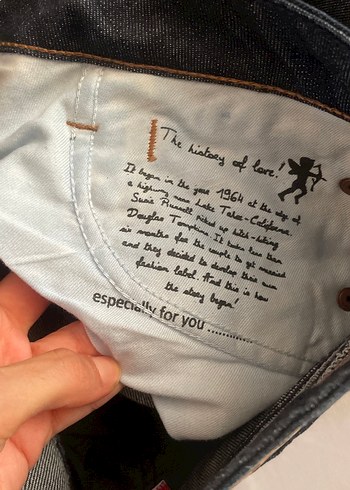 The history of love!
It began in the year 1964 at the edge of
a highway near Lake Tahoe-California.
Susie Russell picked up hitch-hiking
Douglas Tompkins. It took less than
six months for the couple to get married
and they decided to develop their own
fashion label. And this is how
the story began!
especially for you ............